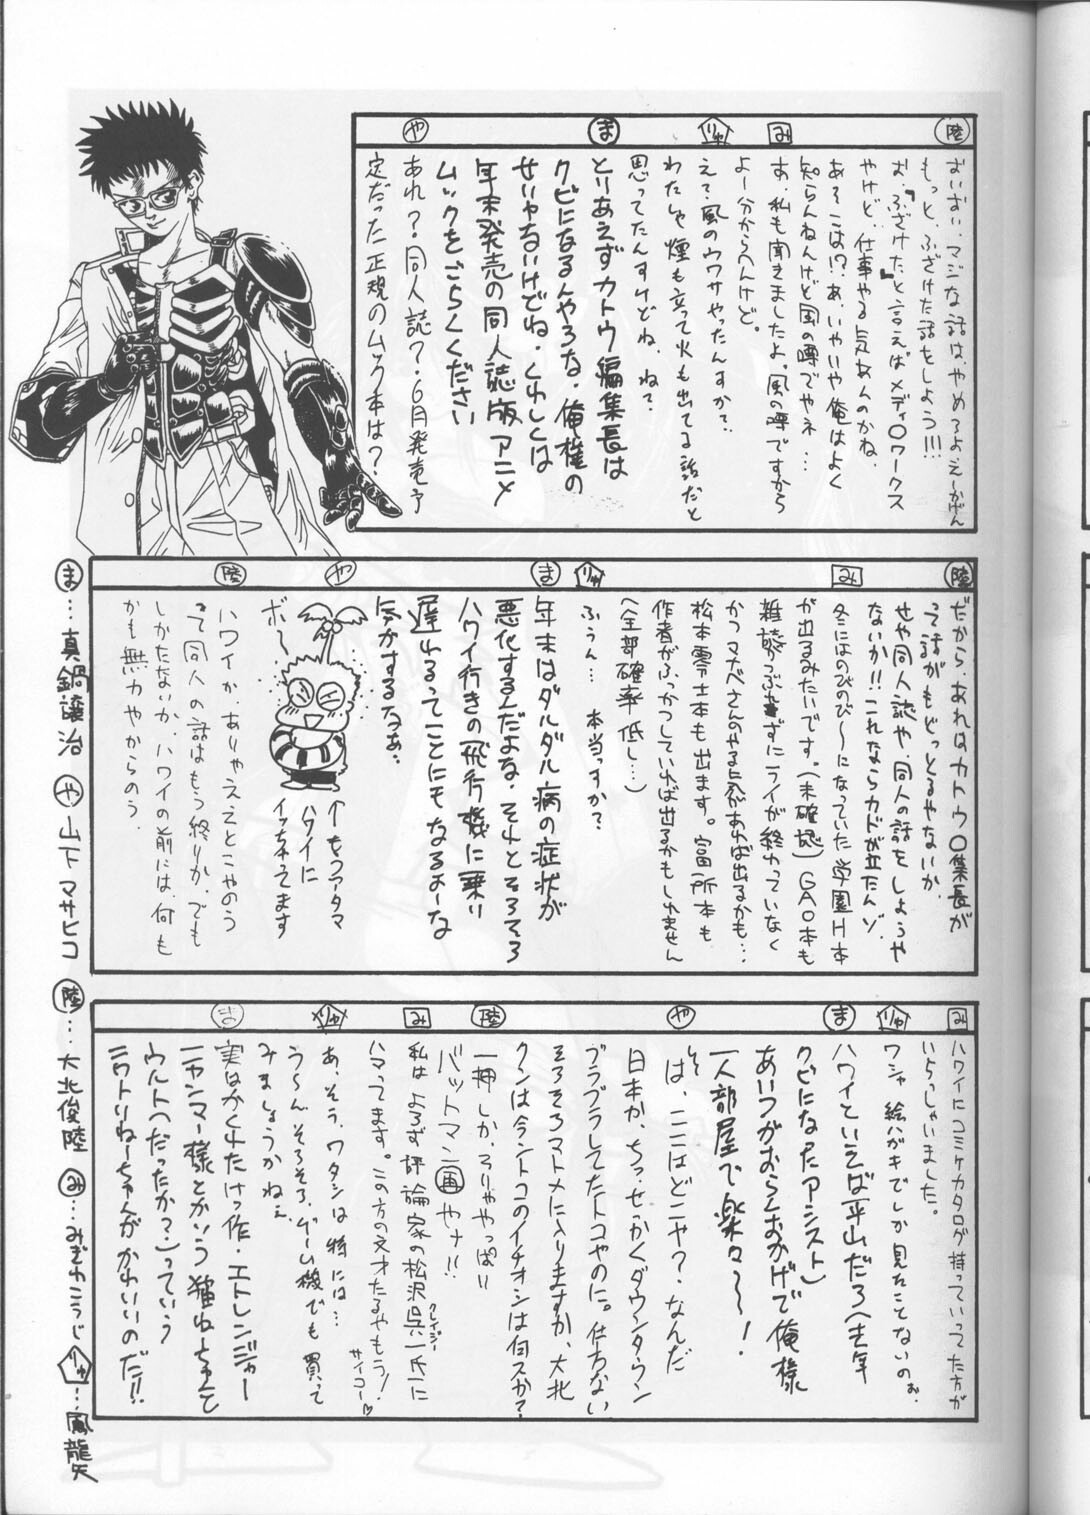 陸
おいおい、マジな話は、やめろよえーかげん
もっと、ふざけた話をしよう!!!
お、「ふざけた」と言えばメディ○ワークス
やけど、仕事やる気あんのかね、
あそこは!?あ、いやいや俺はよく
知らんねんけど風の噂でやネ…
み
あ、私も聞きましたよ。風の噂ですから
よー分からへんけど。
りゅ
え?風のウワサやったんすか?
わたしゃ煙も立って火も出てる話だと
思ってたんすけどね、ね?
ま
とりあえずカトウ編集長は
クビになるんやろな、俺様の
せいやないけどね、くわしくは
年末発売の同人誌版アニメ
ムックをごらんください
や
あれ?同人誌?6月発売予
定だった正規のムック本は?
陸
だから、あれはカトウ○集長が
って話がもどっとるやないか、
せや同人誌や、同人の話をしようや
ないか!!これならカドが立たんゾ、
み
冬にはのびのび〜になっていた学園H本
が出るみたいです。(未確認)GAO本も
雑誌つぶれずにライが終わっていなく
かつマナベさんのやる気があれば出るかも…
松本零士本も出ます。富所本も
作者がふっかつしていれば出るかもしれません
(全部確率低し…)
りゅ
ふぅん…本当っすか?
ま
年末はダルダル病の症状が
悪化するんだよな、それとそろそろ
ハワイ行きの飛行機に乗り
遅れるってことにもなるよーな
気がするなぁ、
や
ボ〜
↑もうアタマ
ハワイに
イッちゃってます
陸
ハワイか ありゃええとこやのう
って同人の話はもう終りか、でも
しかたないか、ハワイの前には、何も
かも無力やからのう、
み
ハワイにコミケカタログ持っていってた方が
いらっしゃいました。
りゅ
ワシャ絵ハガキでしか見たことないのぉ
ま
ハワイといえば平山だろ(去年
クビになったアシスト)
あいつがおらんおかげで俺様
一人部屋で楽々〜〜!
や
は、ここはどこや?、なんだ
日本か、ちっ、せっかくダウンタウン
ブラブラしてたトコやのに。仕方ない
そろそろマトメに入りますか、大北
クンは今ントコのイチオシは何スか?
陸
一押しか、そりゃやっぱ!!
バットマン画やナ!!
み
私は よろず評論家の松沢呉一氏に
クレイジー
ハマってます。この方の文才たるやもう!
サイコー♡
りゅ
あ、そう、ワタシは特には…
う〜ん、そろそろ、ゲーム機でも買って
みましょうかねぇ
ま
実はかくれたけっ作・エトレンジャー
ニャンマー様とかいう猫ねえちゃんと
ウルト(だったか?)っていう
ニワトリねーちゃんがかわいいのだ!!
ま…真鍋譲治 や山下マサヒコ 陸…大北俊陸 み…みぎわこうじ りゅ…風龍矢